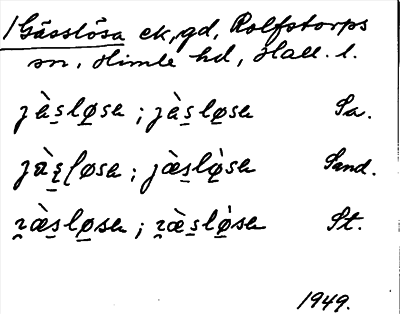 /Gässlösa ek, gd, Rolfstorps
sn, Himle hd, Hall. l.
jæ̀s̲lø̲sa ; jæ̀s̲lø̲sa Sa.
jæ̀s̲løsa ; jæs̲lø̲̀sa Sand.
ɿæ̀s̲lø̲sa ; ɿæ̀s̲lø̲̀sa St.
1949.